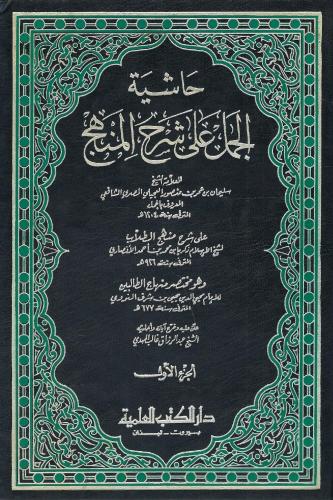 حاشية
الجمل على شرح المنهج
للعلامة الشيخ
سليمان بن عمر بن منصور العجيلي المصري الشافعي
المعروف بالجمل
المتوفى سنة ١٢٠٤هـ
على شرح منهج الطلاب
لشيخ الإسلام زكريا بن محمد بن أحمد الأنصاري
المتوفى سنة ٩٢٦هـ
وهو مختصر منهاج الطالبين
للإمام محيي الدين يحيى بن شرف النووي
المتوفى سنة ٦٧٧هـ
علق عليه وخرج آياته وأحاديثه
الشيخ عبد الرزاق غالب المهدي
الجزء الأول
دار الكتب العلمية
بيروت - لبنان